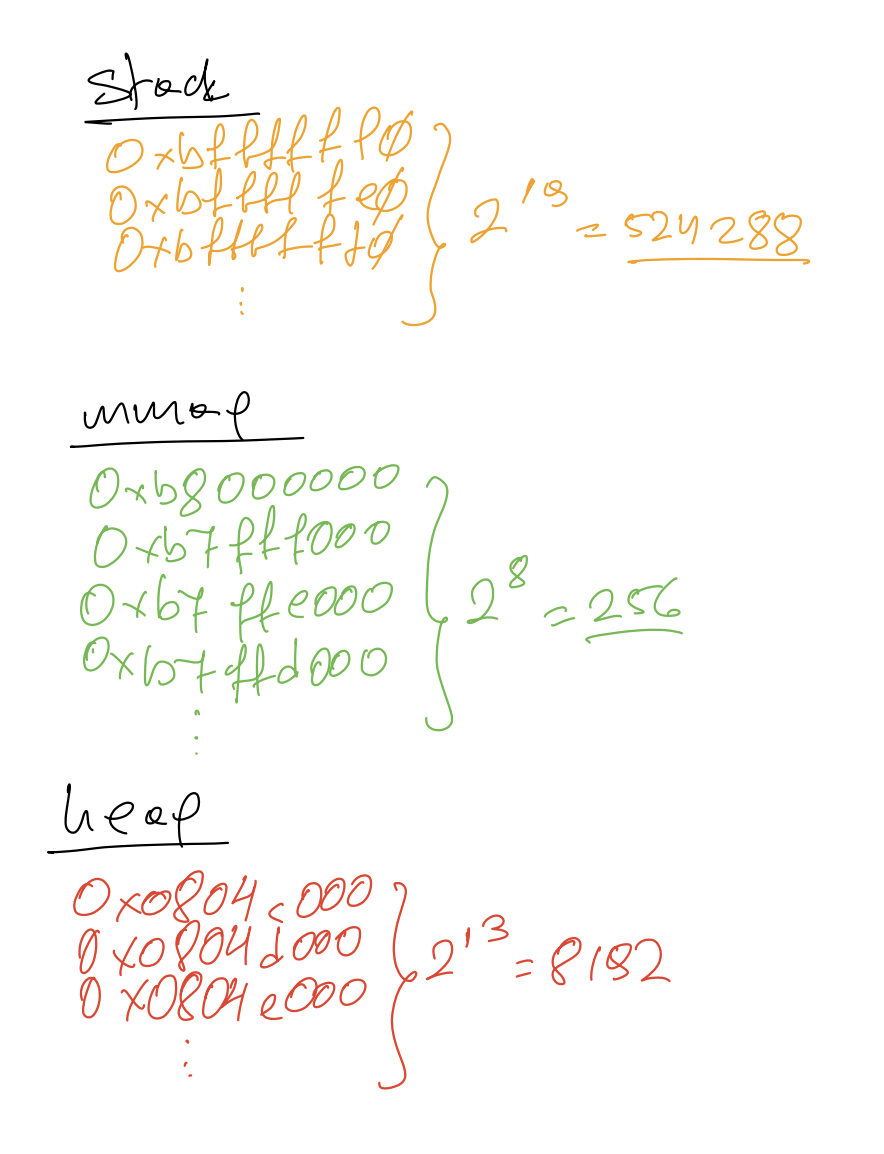 stack
0xbffffff0
0xbfffffe0
0xbfffffd0
⋮
2^19 = 524288
mmap
0xb8000000
0xb7fff000
0xb7ffe000
0xb7ffd000
⋮
2^8 = 256
heap
0x0804c000
0x0804d000
0x0804e000
⋮
2^13 = 8192